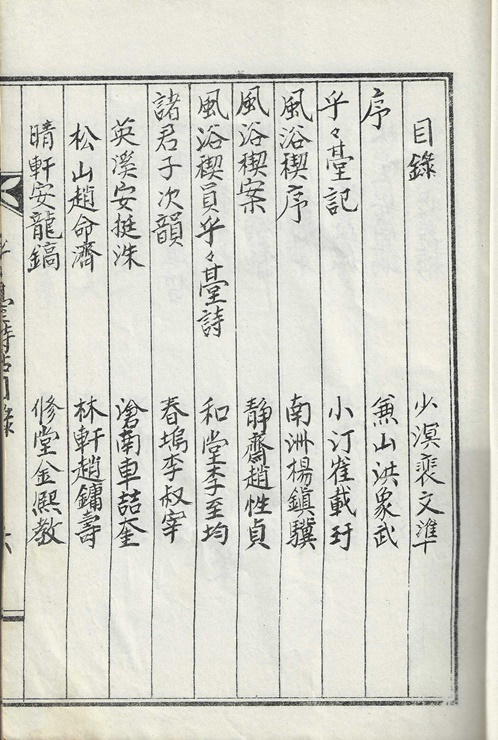 目錄 少溟裵文準
序 兼山洪象武
乎々臺記 小汀崔載玗
風浴稧序 南洲楊鎭驥
風浴稧案 靜齋趙性貞
風浴稧員乎々臺詩 和堂李至均
諸君子次韻 春塢李叔宰
英溪安挺洙 滄南車喆奎
松山趙命濟 林軒趙鏞壽
晴軒安龍鎬 修堂金熙敎